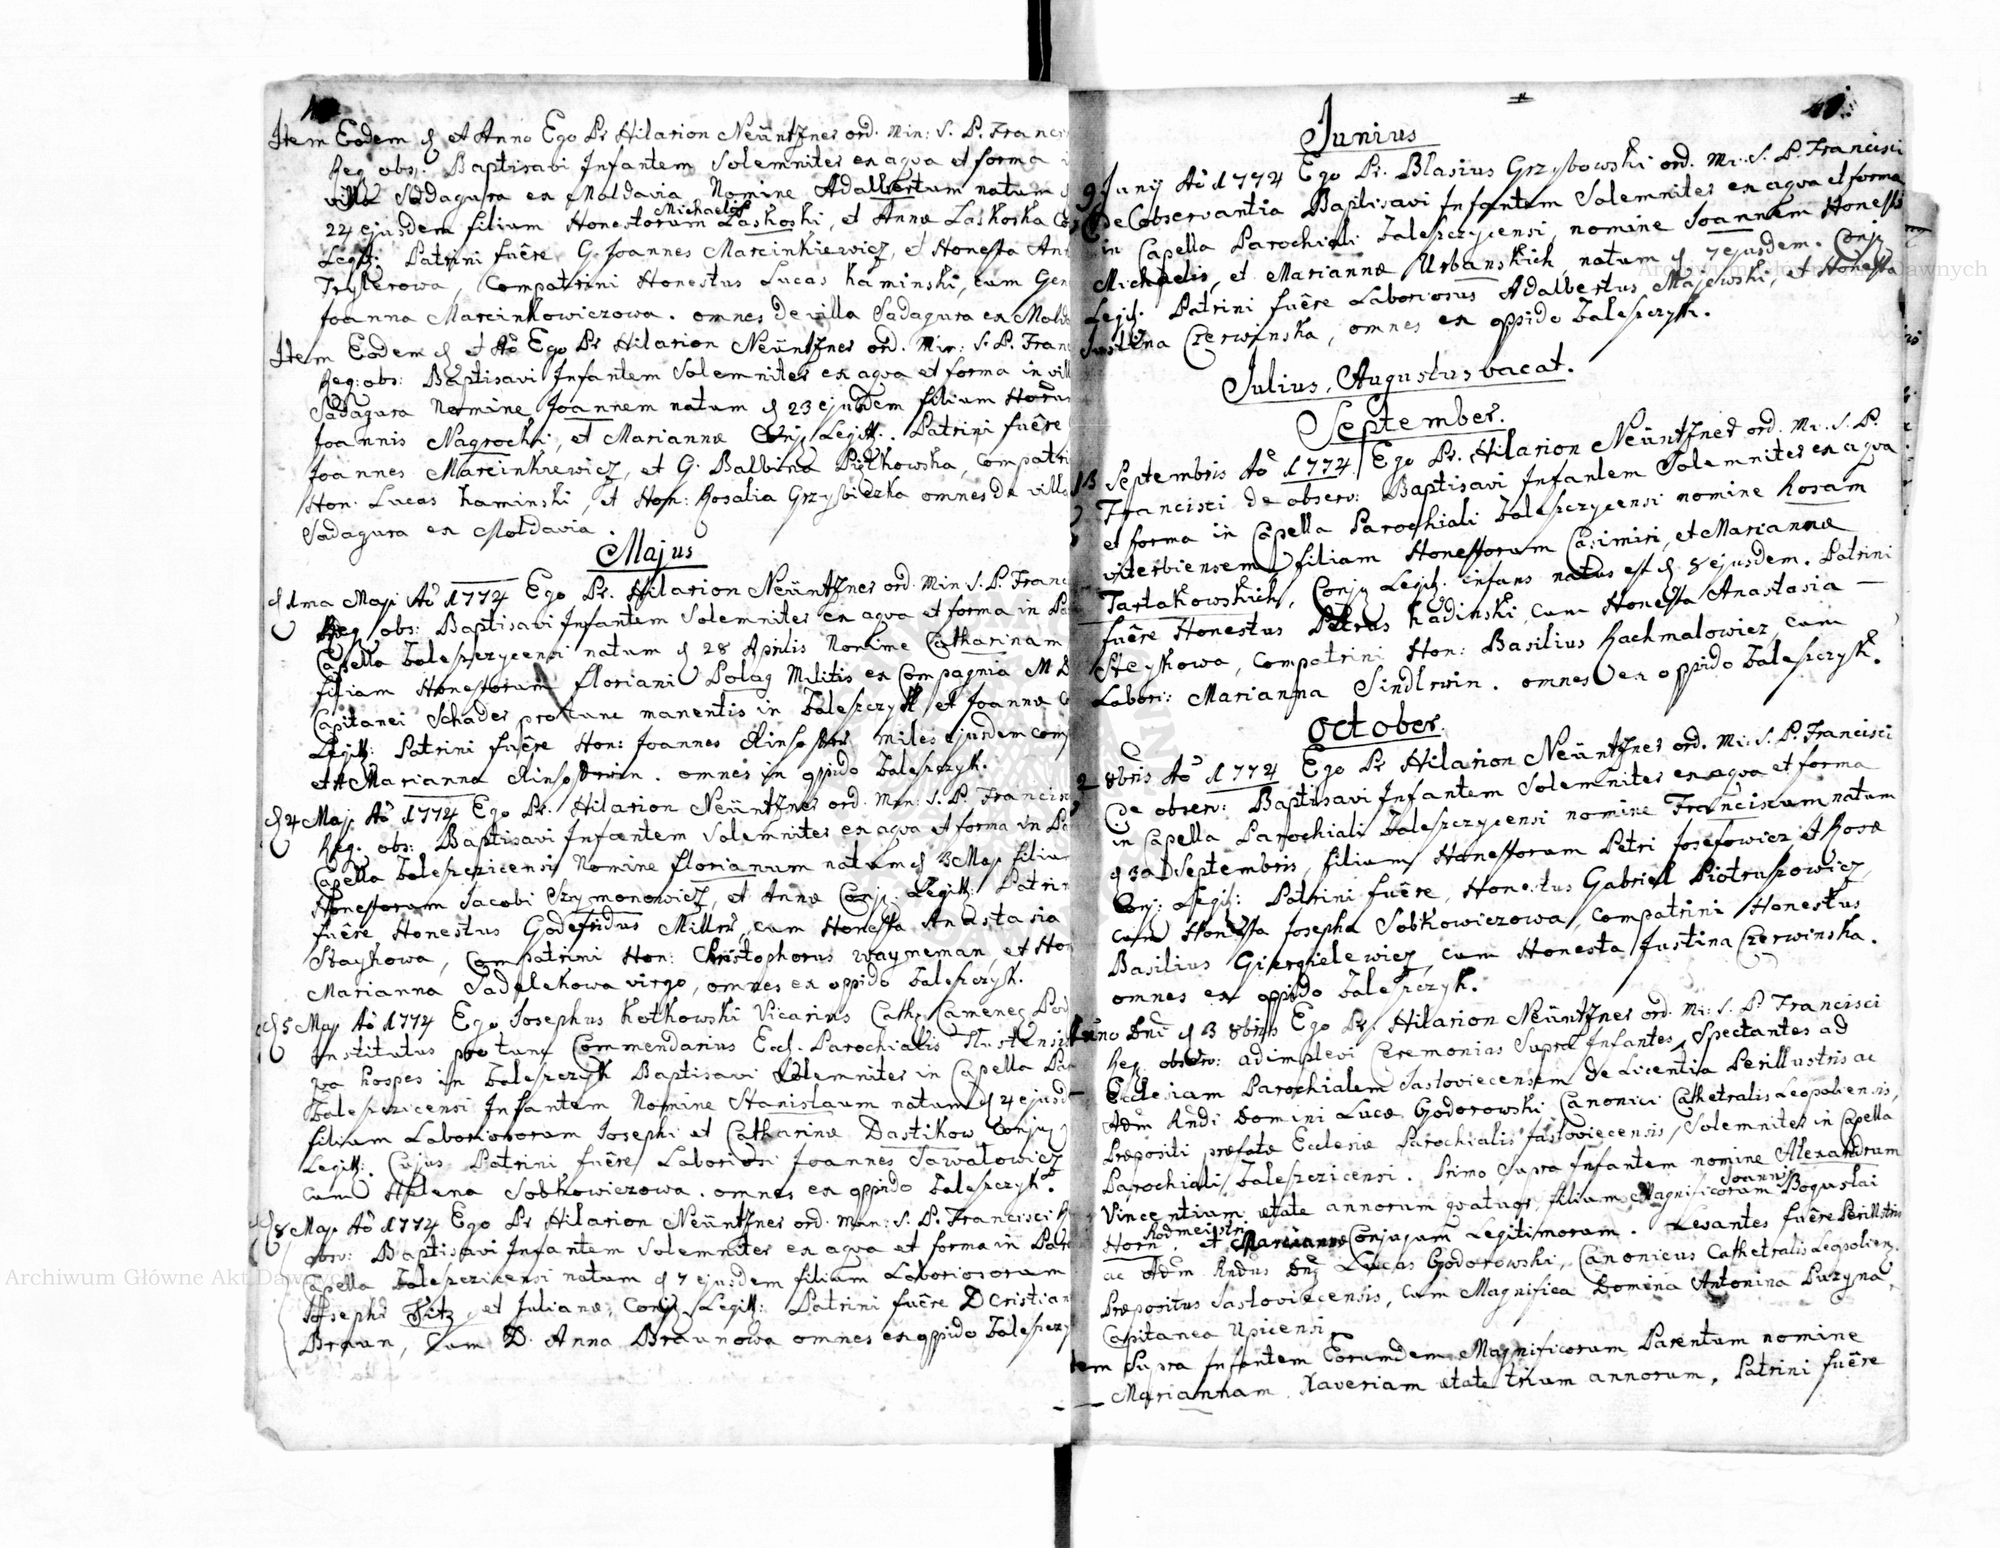 Item Eodem d et Anno Ego Pr Hilarion Neüntzner ord. Min: S. P. Francis
Reg obs: Baptisavi Infantem Solemniter ex aqva et forma
villa Sadagura ex Moldavia Nomine Adalbertum natum d
22 ejusdem filium Honestorum Michaelis Laskoski, et Annæ Laskoska Co
Legit: Patrini fuêre G. Joannes Marcinkiewicz, et Honesta An
Tryllerowa, Compatrini Honestus Lucas Kaminski, cum Gen
Joanna Marcinkowiczowa. omnes de villa Sadagura ex Molda
Item Eodem d et Aõ Ego Pr Hilarion Neüntzner ord. Min: S. P. Fran
Reg: obs: Baptisavi Infantem Solemniter ex aqva et forma in vill
Sadagura Nomine Joannem natum d 23 ejusdem filium
Joannis Nagrocki, et Mariannæ Conj. Legitt. Patrini fuêre
Joannes Marcinkiewicz, et G. Balbina Piotkowska, Compatri
Hon. Lucas Kaminski, et Hon: Rosalia Grzybidzka omnes de villa
Sadagura ex Moldavia.
Majus
d 1ma Maji Aõ 1774 Ego Pr. Hilarion Neüntzner ord. Min S. P. Franc
Reg obs: Baptisavi Infantem Solemniter ex aqva et forma in Pa
Capella Zaleszczycensi natum d 28 Aprilis Nomine Catharinam
filiam Honestorum Floriani Polag Militis ex Compagnia M D
Capitanei Schader pro tunc manentis in Zaleszczyk et Joannæ C
Legitt: Patrini fuêre Hon: Joannes miles ejusdem comp
et Marianna omnes in oppido Zaleszczyk.
d 4 Maji Aõ 1774 Ego Pr. Hilarion Neüntzner ord. Min: S. P. Francis
Reg. obs: Baptisavi Infantem Solemniter ex aqva et forma in Pa
Capella Zaleszczicensi Nomine Florianum natum d 3 Maji filium
Honestorum Jacobi Szymonowicz, et Annæ Conj: Legitt: Patrin
fuêre Honestus Godefridus Miller, cum Honesta Anastasia
Staykowa, Compatrini Hon: Christophorus Waygneman et Hon
Marianna Sadelekowa virgo, omnes ex oppido Zaleszczyk.
d 5 Maji Aõ 1774 Ego Josephus Kotkowski Vicarius Cath: Camenec Pod
Institutus pro tunc Commendarius Eccl. Parochialis
qva hospes in Zaleszczyk Baptisavi Solemniter in Capella Par
Zaleszczicensi Infantem Nomine Stanislaum natum d 4 ejusd
filium Laboriosorum Josephi et Catharinæ Dastikow Conjug
Legitt: Cujus Patrini fuêre Laboriosi Joannes Sawatowicz
cum Helena Sobkowiczowa. omnes ex oppido Zaleszczyk.
d 8 Maji Aõ 1774 Ego Pr Hilarion Neüntzner ord. Min: S. P. Francisci R
obsr: Baptisavi Infantem Solemniter ex aqva et forma in Par
Capella Zaleszczicensi natum d 7 ejusdem filium Laboriosorum
Josephi Fitz, et Julianæ, Conj. Legitt: Patrini fuêre D Cristian
Braun, cum D. Anna Braunowa omnes ex oppido Zaleszczy
Junius
9 Junij Aõ 1774 Ego Pr. Blasius Grzybowski ord. Mi. S. P. Francisci
De Observantia Baptisavi Infantem Solemniter ex aqva et forma
in Capella Parochiali Zaleszczycensi, nomine Joannem Honest
Michaelis, et Mariannæ Urbanskich, natum d. 7 ejusdem. Conj
Legit. Patrini fuêre Laboriosus Adalbertus Majewski, et Honesta
Justina Czerwinska, omnes ex oppido Zaleszczyk.
Julius, Augustus vacat.
September.
13 Septembris Aõ 1774. Ego Pr. Hilarion Neüntzner ord. Mi. S. P.
Francisci de observ: Baptisavi Infantem Solemniter ex aqva
et forma in Capella Parochiali Zaleszczycensi nomine Rosam
viterbiensem filiam Honestorum Casimiri, et Mariannæ
Tartakowskich, Conj Legit. infans natus est d. 8 ejusdem. Patrini
fuêre Honestus Petrus Kadinski, cum Honesta Anastasia
Steykowa, Compatrini Hon: Basilius Rachmalowicz, cum
Labori: Marianna Sindlrwin. omnes ex oppido Zaleszczyk.
October.
2 8bris Aõ 1774 Ego Pr Hilarion Neüntzner ord. Mi: S. P. Francisci
De observ: Baptisavi Infantem Solemniter ex aqva et forma
in Capella Parochiali Zaleszczycensi nomine Franciscum natum
d 30 Septembris, filium Honestorum Petri Josefowicz, et Rosæ
Conj: Legit: Patrini fuêre, Honestus Gabriel Piotruszowicz,
cum Honesta Josepha Sobkowiczowa, Compatrini Honestus
Basilius Giergielewicz, cum Honesta Justina Czerwinska.
omnes ex oppido Zaleszczyk.
Anno Dni d 3 8bris Ego Pr. Hilarion Neüntzner ord. Mi: S. P. Francisci
Reg. observ: adimplevi Ceremonias Supra Infantes, Spectantes ad
Ecclesiam Parochialem Jasloviecensem De Licentia Perillustris ac
Adm Rndi Domini Lucæ Godorowski Canonici Cathetralis Leopoliensis,
Præpositi præfatæ Ecclesiæ Parochialis Jasloviecensis, Solemniter in Capella
Parochiali Zaleszczicensi. Primo Supra Infantem nomine Alexandrum
Vincentium ætate annorum qvatuor, filium Magnificorum Joannis Boguslai
Horn Rodmeistri, et Mariannæ Conjugum Legitimorum. Levantes fuêre Perillstris
ac Adm Rndus Dnus Lucas Godorowski, Canonicus Cathetralis Leopolien,
Præpositus Jasloviecensis, Cum Magnifica Domina Antonina Puzyna,
Capitanea Upicensi,
Item Supra Infantem Eorumdem Magnificorum Parentum nomine
Mariannam Xaveriam ætate trium annorum. Patrini fuêre
Archiwum Główne Akt Dawnych
Archiwum Główne Akt Dawnych